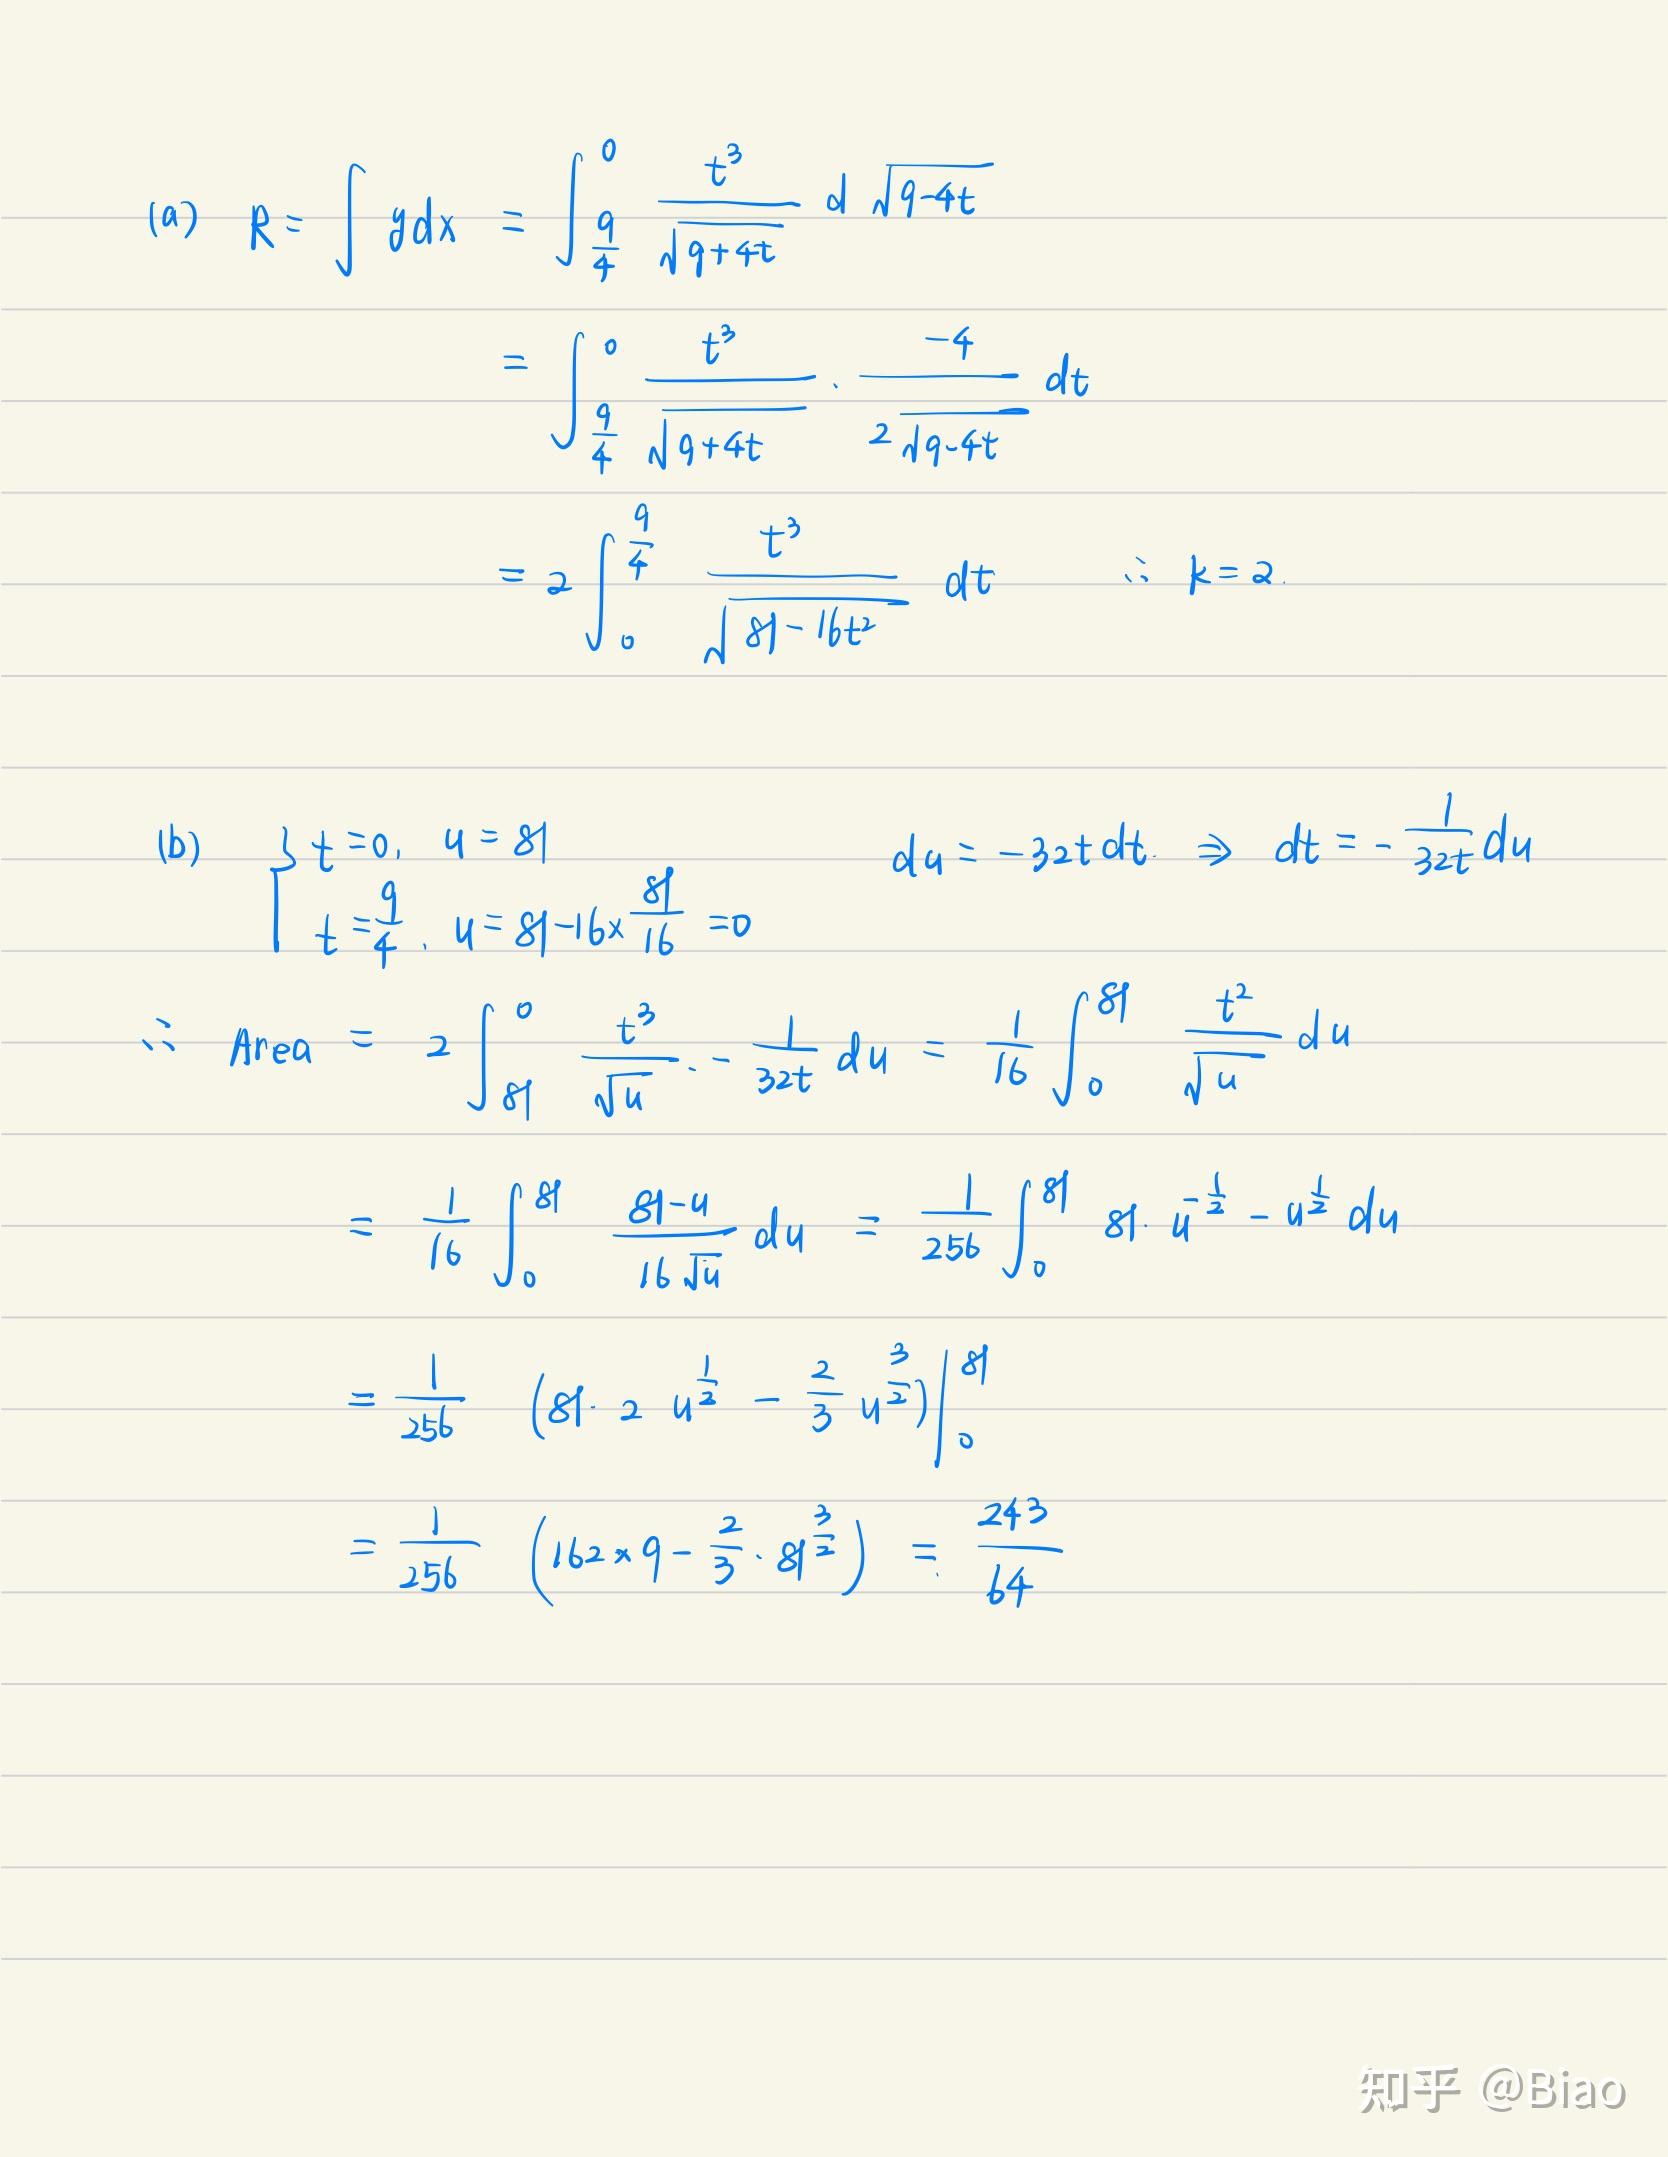 (a) R = ∫ y dx = ∫_{9/4}^{0} t³/√(9+4t) d √(9-4t)
= ∫_{9/4}^{0} t³/√(9+4t) · -4/(2√(9-4t)) dt
= 2 ∫_{0}^{9/4} t³/√(81-16t²) dt ∴ k = 2.
(b) { t = 0, u = 81 du = -32t dt. ⇒ dt = - 1/(32t) du
t = 9/4, u = 81-16× 81/16 = 0
∴ Area = 2 ∫_{81}^{0} t³/√u · - 1/(32t) du = 1/16 ∫_{0}^{81} t²/√u du
= 1/16 ∫_{0}^{81} (81-u)/(16√u) du = 1/256 ∫_{0}^{81} 81· u^{-1/2} - u^{1/2} du
= 1/256 (81· 2 u^{1/2} - 2/3 u^{3/2}) |_{0}^{81}
= 1/256 (162×9 - 2/3 · 81^{3/2}) = 243/64
知乎 @Biao